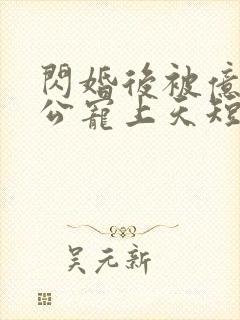 閃婚後被億
公寵上天短
吴元新